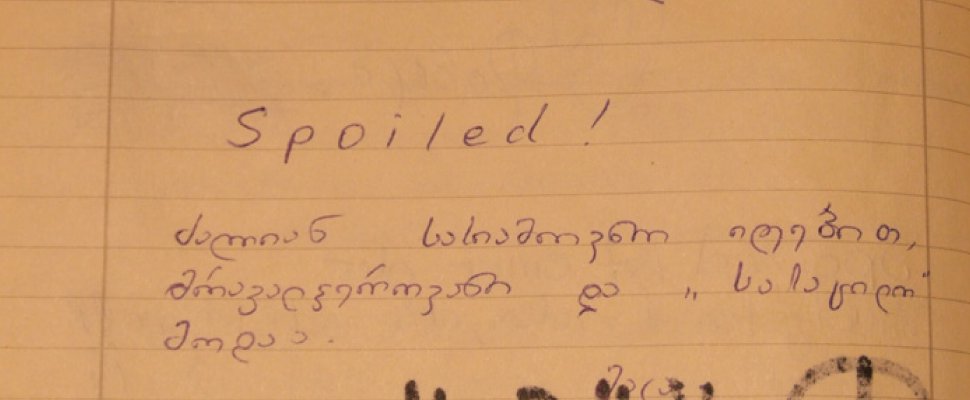 Spoiled!
ძალიან სასიამოვნო იდებით,
მრავალფეროვანი და „სასაცილო"
მოდაა.